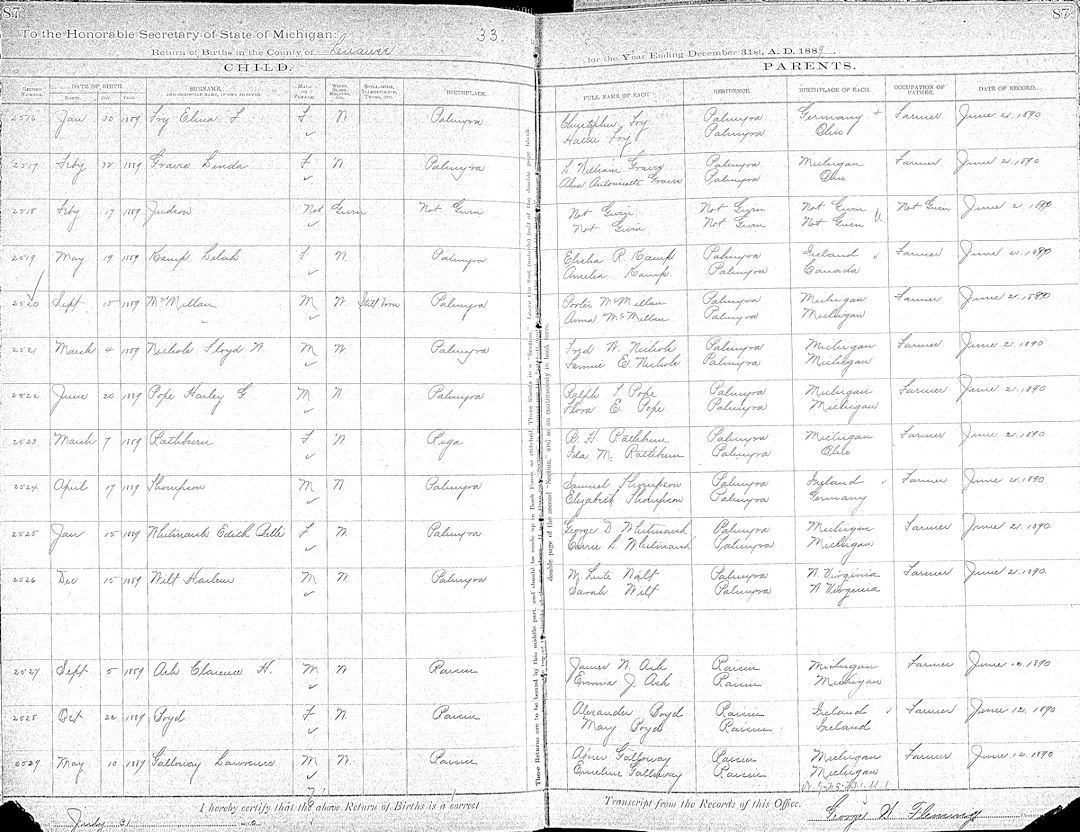 87
87
To the Honorable Secretary of State of Michigan:
33
Return of Births in the County of Lenawee
for the Year Ending December 31st, A. D. 1889
CHILD.
PARENTS.
RECORD NUMBER. DATE OF BIRTH. MONTH. DAY. YEAR. SURNAME, AND CHRISTIAN NAME, IF ONE BE GIVEN. MALE OR FEMALE. BIRTHPLACE. FULL NAME OF EACH. RESIDENCE. BIRTHPLACE OF EACH. OCCUPATION OF FATHER. DATE OF RECORD.
2516 Jan 20 1889 Fry Elma F F W Palmyra Christopher Fry Palmyra Germany + Farmer June 21. 1890
Hattie Fry Palmyra Ohio
2517 Feby 22 1889 Graves Linda F W Palmyra L William Graves Palmyra Michigan Farmer June 21. 1890
Antoinette Graves Palmyra Ohio
2518 Feby 17 1889 Judson Not Given Not Given Not Given Not Given Not Given Not Given June 21. 1890
Not Given Not Given Not Given
2519 May 19 1889 Kamp F W Palmyra Elisha R Kamp Palmyra Ireland Farmer June 21. 1890
Amelia Kamp Palmyra Canada
2520 Sept 15 1889 McMillan M W Still born Palmyra Porter McMillan Palmyra Michigan Farmer June 21. 1890
Anna McMillan Palmyra Michigan
2521 March 4 1889 Nichols Floyd W. M W Palmyra Fred W. Nichols Palmyra Michigan Farmer June 21. 1890
E. Nichols Palmyra Michigan
2522 June 20 1889 Pope Harley G M W Palmyra Ralph Pope Palmyra Michigan Farmer June 21. 1890
Flora E. Pope Palmyra Michigan
2523 March 7 1889 Rathburn F W Riga H Rathburn Palmyra Michigan Farmer June 21. 1890
Ida M. Rathburn Palmyra Ohio
2524 April 17 1889 Thompson M W Palmyra Samuel Thompson Palmyra Ireland Farmer June 21. 1890
Elizabeth Thompson Palmyra Germany
2525 Jan 15 1889 Whitmarsh Edith F W Palmyra George D Whitmarsh Palmyra Michigan Farmer June 21. 1890
Carrie L. Whitmarsh Palmyra Michigan
2526 Dec 15 1889 Wilt Harlem M W Palmyra Wilt Palmyra W. Virginia Farmer June 21. 1890
Sarah Wilt Palmyra W. Virginia
2527 Sept 5 1889 Ash Clarence H. M W Raisin James W. Ash Raisin Michigan Farmer June 12. 1890
Emma J. Ash Raisin Michigan
2528 Oct 22 1889 Boyd F W Raisin Alexander Boyd Raisin Ireland Farmer June 12. 1890
Mary Boyd Raisin Ireland
2529 May 10 1889 Galloway Lawrence M W Raisin Abner Galloway Raisin Michigan Farmer June 12. 1890
Emeline Galloway Raisin Michigan
I hereby certify that the above Return of Births is a correct
Transcript from the Records of this Office.
July 31